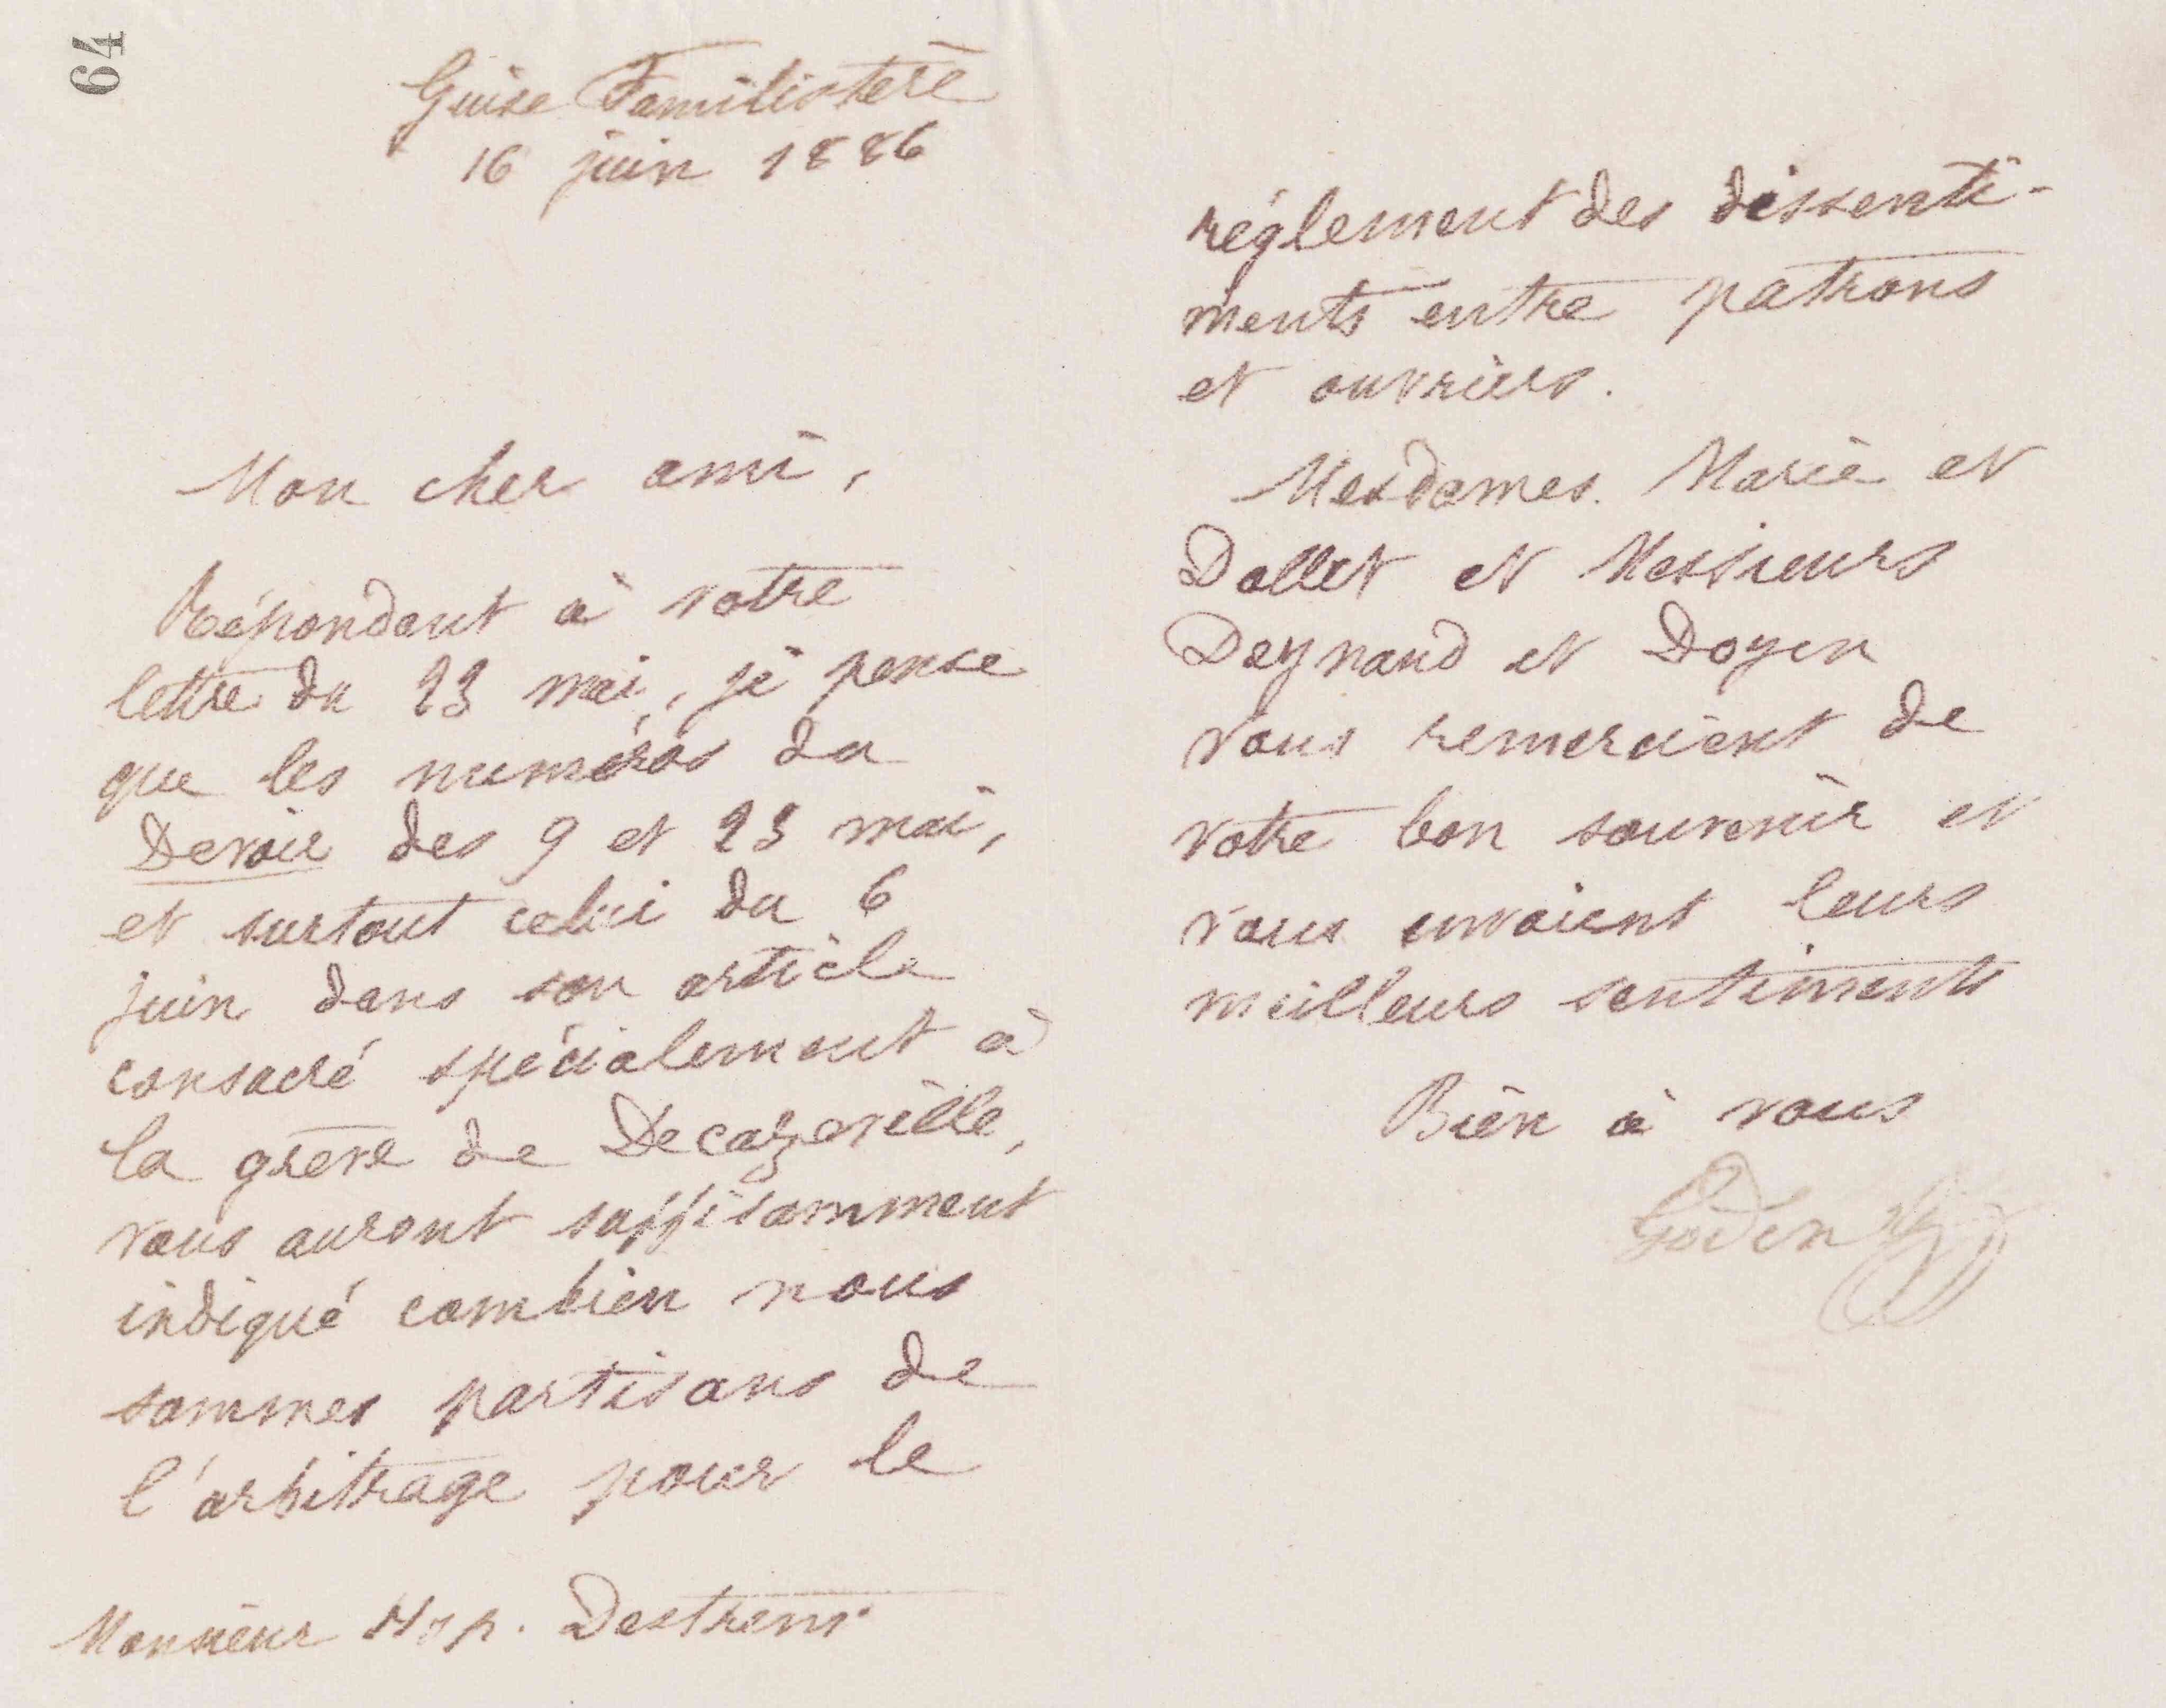 64
Guise Familistère
16 juin 1886
Mon cher ami,
Répondant à votre
lettre du 23 mai, je pense
que les numéros du
Devoir des 9 et 23 mai,
et surtout celui du 6
juin dans son article
consacré spécialement à
la grève de Decazeville,
vous auront suffisamment
indiqué combien nous
sommes partisans de
l'arbitrage pour le
Monsieur Hyp. Destrem
réglement des dissenti-
ments entre patrons
et ouvriers.
Mesdames Marie et
Dallet et Messieurs
Deynaud et Doyen
vous remercient de
votre bon souvenir et
vous envoient leurs
meilleurs sentiments
Bien à vous
Godin